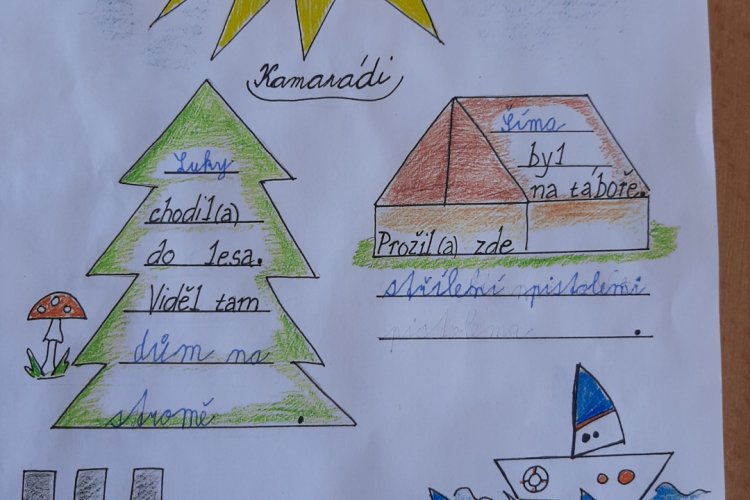 Kamarádi
Luky
chodil(a)
do lesa.
Viděl tam
dům na
stromě.
Šíma
byl
na táboře.
Prožil(a) zde
střílení pistolemi
.